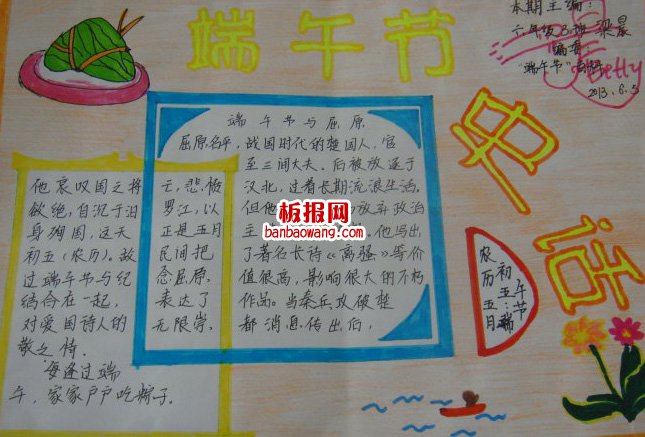 端午节
史话
本期主编：
六年级3班 梁晨
编者
"端午节"
Betty
2013.6.5
端午节与屈原
屈原名平，战国时代的楚国人，官
至三闾大夫。后被放逐于
汉北，过着长期流浪生活，
但他 放弃政治
主 他写出
了著名长诗《离骚》等价
值很高，影响很大的不朽
作品。当秦兵攻破楚
都消息传出后，
他哀叹国之将亡，悲愤
欲绝，自沉于汨罗江，以
身殉国，这天正是五月
初五（农历）。故民间把
过端午节与纪念屈原，
结合在一起，表达了
对爱国诗人的无限崇，
敬之情。
每逢过端
午，家家户户吃粽子。
农历五月
初五：端
午节
板报网
banbaowang.com